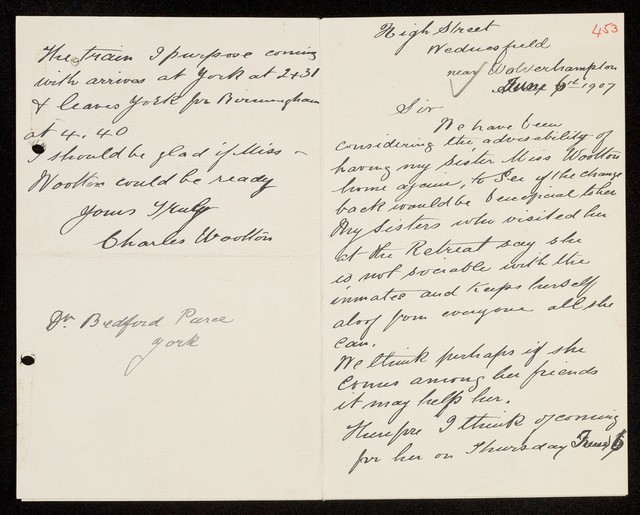 453
High Street
Wednesfield
near Wolverhampton
June 6th 1907
Sir
We have been
considering the advisability of
having my Sister Miss Wootton
home again, to see if the change
back would be beneficial to her
My Sisters who visited her
at the Retreat say she
is not sociable with the
inmates and keeps herself
aloof from everyone all she
can.
We think perhaps if she
comes among her friends
it may help her.
Therefore I think of coming
for her on Thursday June 6
The train I purpose coming
with arrives at York at 2.31
& leaves York for Birmingham
at 4.40
I should be glad if Miss
Wootton could be ready
Yours Truly
Charles Wootton
Dr. Bedford Pierce
York